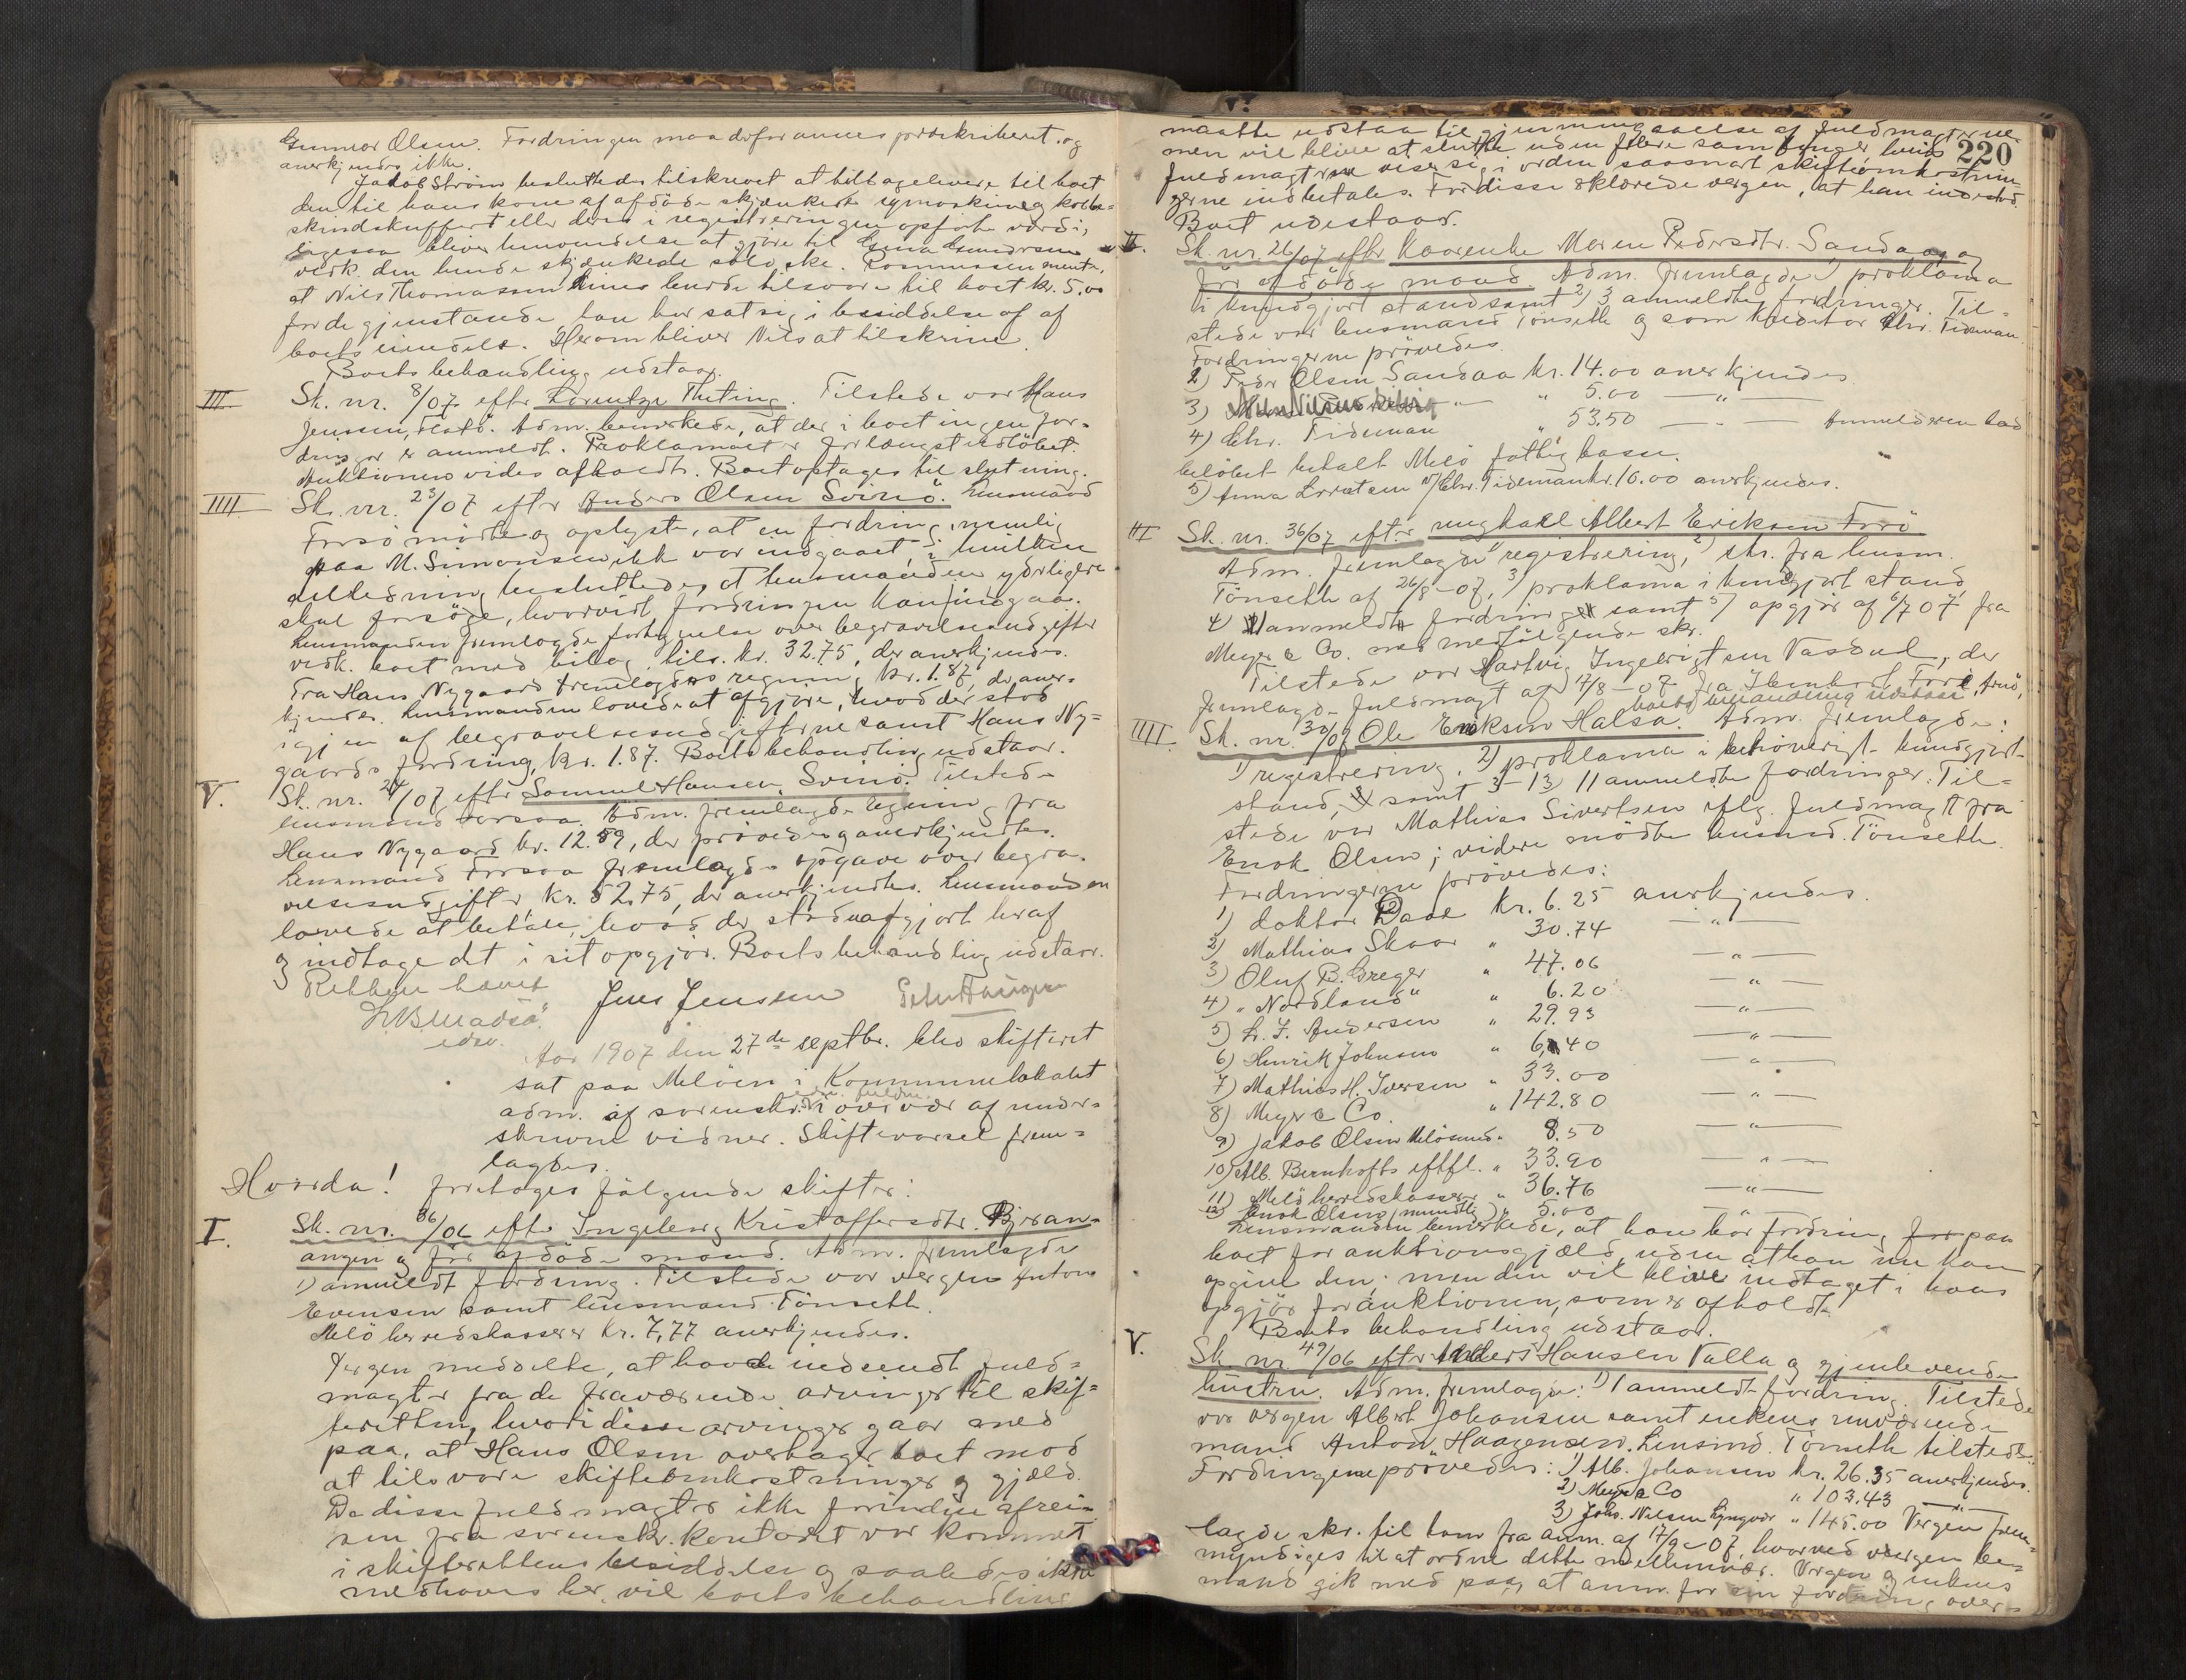 Gunnar Olsen. Fordringen maa derfor ansees præskriberet og
anerkjendes ikke.
Jakob Strøm besluttedes tilskrevet at tilbagelevere til boet
den til hans kone af afdøde skjænkede symaskine og kobbe-
skindskuffert eller deres i registreringen opførte værdi,
ligesaa bliver henvendelse at gjøre til
vedk. den hende skjænkede sølvske. Rasmussen mente,
at Nils Thomassen burde tilsvare til boet kr. 5.00
for de gjenstande han har sat sig i besiddelse af af
boets eiendele. Herom bliver Nils at tilskrive.
Boets behandling udstaar.
III Sk. nr. 8/07 efter Lorentze Theting. Tilstede var Hans
Jensen, Adm. bemerkede, at der i boet ingen for-
dringer er anmeldt. Proklamaet er forlængst udløbet.
Auktionen vides afholdt. Boet optages til slutning.
IIII Sk. nr. 23/07 efter Anders Olsen Svinø. Lensmand
Forsø mødte og oplyste, at en fordring, nemlig
paa M. Simonsen ikke var indgaaet, i hvilken
anledning besluttedes, at lensmanden yderligere
skal forsøge, hvorvidt fordringen kan indgaa.
Lensmanden fremlagde fortegnelse over begravelsesudgifter
vedk. boet med bilag, tils. kr. 32.75, der anerkjendes.
Fra Hans Nygaard fremlagdes regning kr. 1.87, der aner-
kjendes. Lensmanden lovede at afgjøre, hvad der stod
igjen af begravelsesudgifterne samt Hans Ny-
gaards fordring, kr. 1.87. Boets behandling udstaar.
V. Sk. nr. 24/07 efter Samuel Hansen Svinø. Tilstede
lensmand Forsaa. Adm. fremlagde regning fra
Hans Nygaard kr. 12.59, der prøvedes og anerkjendtes.
Lensmand Forsaa fremlagde opgave over begra-
velsesudgifter kr. 52.75, der anerkjendtes. Lensmanden
lovede at betale, hvad der stod uafgjort heraf
og indtage det i sit opgjør. Boets behandling udstaar.
Retten hævet
Jens Jensen
edsv.
Aar 1907 den 27de septbr. blev skifteret
sat paa Meløen i Kommunelokalet
adm. af sorenskr. edsv. fuldm. i overvær af under-
skrevne vidner. Skiftevarsel frem-
lagdes.
Hvorda! foretoges følgende skifter:
I. Sk. nr. 36/06 efter Ingeborg Kristoffersdtr. Bjæran-
angen og før afdøde mand. Adm. fremlagde
1) anmeldt fordring. Tilstede var vergen Anton
Evensen samt lensmand Tönseth.
Melö herredskasserer kr. 7,77 anerkjendes.
Vergen meddelte, at have indsendt fuld-
magter fra de fraværende arvinger til skif-
teretten, hvori disse arvinger gaar med
paa, at Hans Olsen overtager boet mod
at tilsvare skifteomkostninger og gjæld.
Da disse fuldmagter ikke forinden afrei-
sen fra sorenskr. kontoret var kommet
i skifterettens besiddelse og saaledes ikke
medhaves her, vil boets behandling
220
maatte udstaa til gjennemgaaelse af fuldmagterne
men vil blive at slutte uden flere samlinger hvis
fuldmagterne viser sig i orden saasnart skifteomkostnin-
gerne indbetales. For disse erklærede vergen, at han indestod.
Boet udestaar.
II. Sk. nr. 26/07 efter Kaarente Maren Pedersdtr. Sandaa og
før afdøde mand Adm. fremlagde 1) proklama
i kundgjort stand samt 2) 3 anmeldte fordringer. Til-
stede var lensmand Tönseth og som kreditor Chr. Tideman.
Fordringerne prövedes.
2) Peder Olsen Sandaa kr. 14.00 anerkjendes.
3) " 5.00 — " —
4) Chr. Tideman " 53.50 — " — Anmelderen had
beløbet betalt Melö fattigkasse.
5) Anna Lorentsen v/Chr. Tideman kr. 10.00 anerkjendes.
III Sk. nr. 36/07 efter ungkarl Albert Eriksen Forö
Adm. fremlagde 1) registrering, 2) skr. fra lensm.
Tönseth af 26/8-07, 3) proklama i kundgjort stand,
4) 1 anmeldt fordring samt 5) opgjör af 6/7 07 fra
Meyer & Co. med medfølgende skr.
Tilstede var Hartvig Ingebrigtsen Vasdal, der
fremlagde fuldmagt af 17/8-07 fra
boets behandling udstaar
IIII. Sk. nr. 30/07 Ole Eriksen Halsa. Adm. fremlagde:
1) registrering, 2) proklama i behørigt kundgjort
stand, samt 3-13) 11 anmeldte fordringer. Til-
stede var Mathias Sivertsen iflg. fuldmagt fra
Enok Olsen; videre mødte lensmd. Tönseth.
Fordringerne prøvedes:
1) doktor Daae kr. 6.25 anerkjendes.
2) Mathias Skaar " 30.74 — " —
3) Oluf B. Greger " 47.06 — " —
4) „Nordland" " 6.20 — " —
5) L. J. Andersen " 29.93 — " —
6) Henrik Johnsen " 6.40 — " —
7) Mathias H. Iversen " 33.00 — " —
8) Meyer & Co. " 142.80 — " —
9) Jakob Olsen Melösund " 8.50 — " —
10) Alb. Bernhofts eftfl. " 33.90 — " —
11) Melö herredskasserer " 36.76 — " —
12) Enok Olsen (mundtlig) " 5.00
Lensmanden bemerkede, at han har fordring paa
boet for auktionsgjæld, uden at han nu kan
opgive den; men den vil blive indtaget i hans
opgjør for auktionen, som er afholdt.
Boets behandling udstaar.
V. Sk. nr. 49/06 efter Anders Hansen Valla og gjenlevende
hustru. Adm. fremlagde: 1) 1 anmeldt fordring. Tilstede
var vergen Albert Johansen samt enkens nuværende
mand Anton Haagensen. Lensmd. Tönseth tilstede.
Fordringerne prøvedes: 1) Alb. Johansen kr. 26.35 anerkjendes.
2) Meyer & Co " 103.43 — " —
3) Johs. Nilsen Lyngvær " 145.00 Vergen frem-
lagde skr. til ham fra anm. af 17/9-07, hvorved vergen be-
myndiges til at ordne dette mellemvær. Vergen og enkens
mand gik med paa, at anm. for sin fordring over-